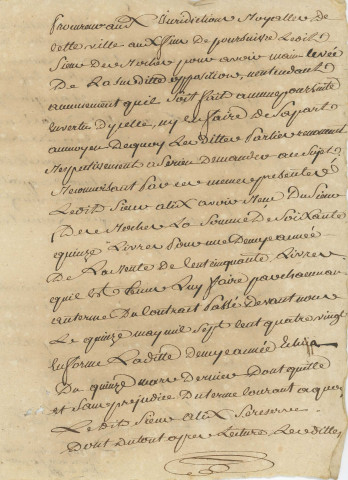 Procureur aux Juridictions Royalles de
cette ville aux fins de poursuivre Ledit
Sieur Du Rocher pour avoir main levée
De La susditte opposition, n'entendant
aucunement qu'il soit fait aucune poursuitte
En vertu D'icelle, ny en faire de sa part
au moyen De quoy Les dittes Parties renoncent
Respectivement a se rien demander au sujet
Reconnoissant Par ces memes presentes
Ledit Sieur alix avoir Reçu Du Sieur
Du Rocher La Somme De Soixante
quinze Livres Pour une Demye année
De La Rente de Cent cinquante Livres
qu'il est tenu Luy faire par chacun an
au terme Du Contrait Passé devant nous
Le quinze may mil Sept Cent quatre vingt
en forme Laditte Demye année
Du quinze mars Dernier Dont quitte
et Sans prejudice Du terme Courant a quoy
Ledit Sieur alix Se reserve
Dont Du tout apres Lecture Les dittes